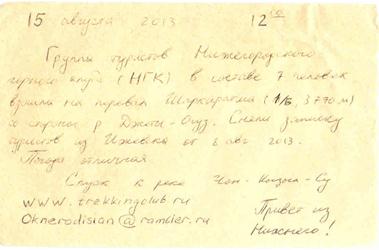 15 августа 2013 12 00
Группа туристов Нижегородского
горного клуба (НГК) в составе 7 человек
взошли на перевал (1Б, 3770 м)
со стороны р Джеты-Огуз. Сняли записку
туристов из Ижевска от 8 авг 2013.
Погода отличная
Спуск к реке Чон-Кызыл-Су
www.trekkingclub.ru
Oknerodisian@rambler.ru
Привет из
Нижнего!